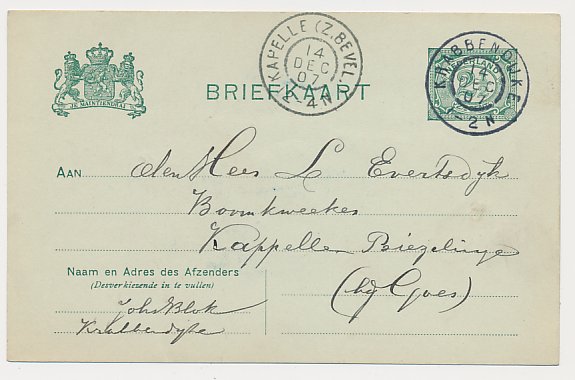 KAPELLE (Z.BEVEL.)
14
DEC
07
2-4N
KRABBENDIJKE
14
DEC
07
-2N
NEDERLAND
2½
JE MAINTIENDRAI
BRIEFKAART
AAN den Heer L Evertsdyk
Boomkweeker
Kappelle Biezelinge
(bij Goes)
Naam en Adres des Afzenders
(Desverkiezende in te vullen)
Johs Blok
Krabbendyke